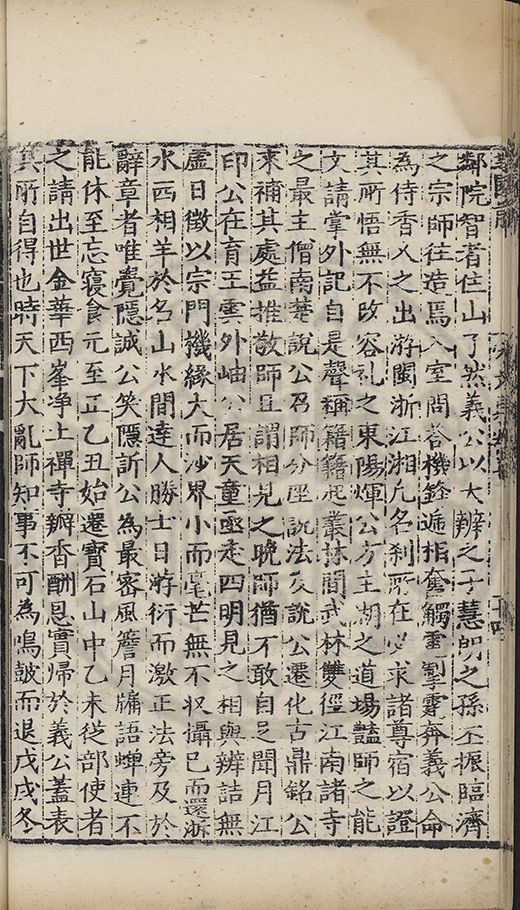 鄰院智者住山了然義公以大辨之子慧朗之孫丕振臨濟
之宗師往造焉入室問荅機鋒遞相奮觸雷掣霆奔義公命
為侍香久之出游閩浙江湘凡名刹所在必求諸尊宿以證
其所悟無不改容礼之東陽煇公方主湖之道場豔師之能
文請掌外記自是聲稱籍籍起叢林間武林雙徑江南諸寺
之最主僧南楚說公召師分座說法及說公遷化古鼎銘公
來補其處益推敬師且謂相見之晚師猶不敢自足聞月江
印公在育王雲外岫公居天童亟走四明見之相與辨詰無
虛日徵以宗門機緣大而沙界小而毫芒無不収攝已而還浙
水西相羊於名山水間達人勝士日游衍而激正法旁及於
辭章者唯覺隱誠公笑隱訢公為最密風簷月牖語蟬連不
能休至忘寢食元至正乙丑始遷寶石山中乙未從部使者
之請出世金華西峯淨土禪寺瓣香酬恩實歸於義公蓋表
其所自得也時天下大亂師知事不可為鳴鼓而退戊戌冬